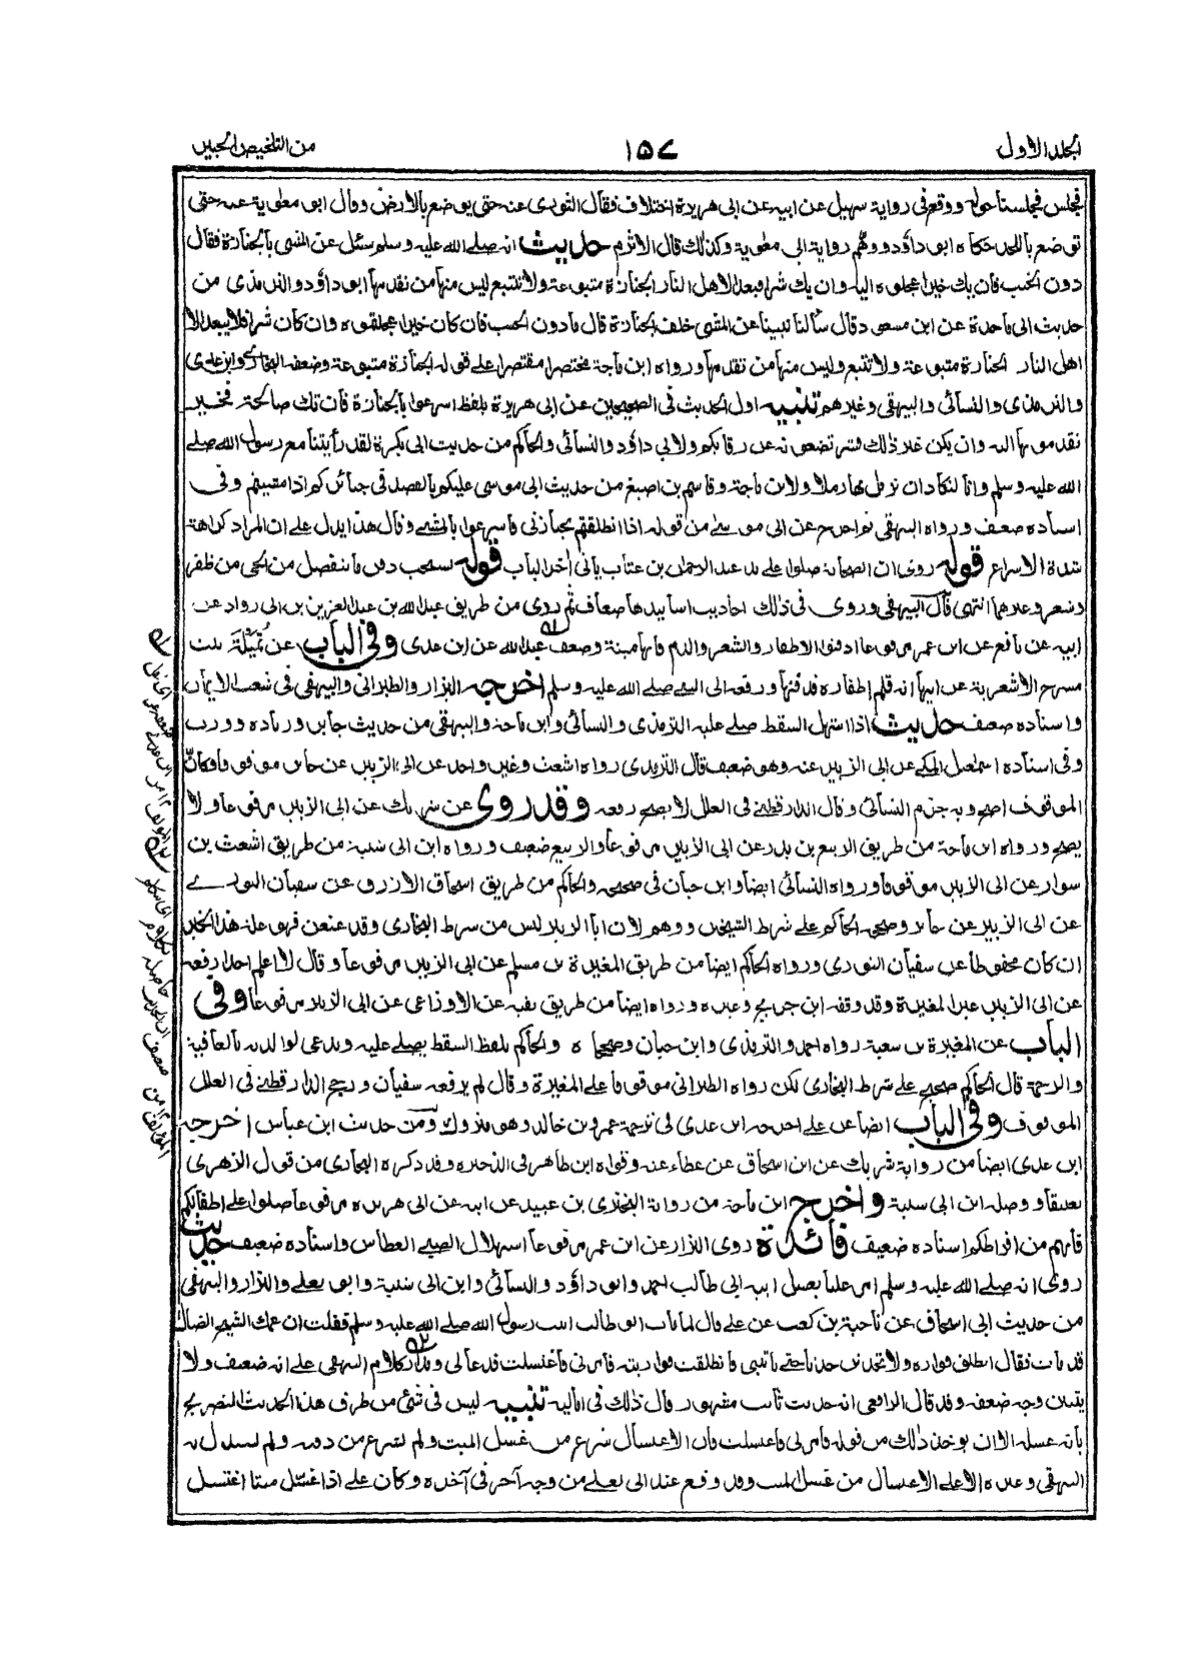 المجلد الاول
١٥٧
من التلخيص الحبير
فجلس فجلسنا حوله ووقع فى رواية سهيل عن ابيه عن ابى هريرة اختلاف فقال الثورى عنه حتى يوضع بالارض وقال ابو معٰوية عنه حتى
توضع باللحد حكاه ابو داؤد ووهم رواية ابى معٰوية وكذلك قال الاثرم حديث انه صلے الله عليه وسلم سئل عن المشى بالجنازة فقال
دون الخبب فان يك خيرا عجلوه اليه وان يك شرا فبعدا لاهل النار الجنازة متبوعة ولا تتبع ليس منها من تقدمها ابو داؤد والترمذى من
حديث ابى ماجدة عن ابن مسعود قال سألنا نبينا عن المشى خلف الجنازة قال ما دون الخبب فان كان خيرا عجلتموه وان كان شرا فلا يبعد الا
اهل النار الجنازة متبوعة ولا تتبع وليس منها من تقدمها ورواه ابن ماجة مختصرا مقتصرا على قوله الجنازة متبوعة وضعفه البخارى وابن عدى
والترمذى والنسائى والبيهقى وغيرهم تنبيه اول الحديث فى الصحيحين عن ابى هريرة بلفظ اسرعوا بالجنازة فان تك صالحة فخير
تقدمونها اليه وان يكن غير ذلك فشر تضعونه عن رقابكم ولابي داؤد والنسائى والحاكم من حديث ابى بكرة لقد رأيتنا مع رسول الله صلے
الله عليه وسلم وانا لنكاد ان نرمل بها رملا ولابن ماجة وقاسم بن اصبغ من حديث ابى موسى عليكم بالقصد فى جنائزكم اذا مشيتم وفى
اسناده ضعف ورواه البيهقى ثم اخرج عن ابى موسى من قوله اذا انطلقتم بجنازتى فاسرعوا بالمشے وقال هذا يدل على ان المراد كراهة
شدة الاسراع قوله روى ان الصحابة صلوا على يد عبد الرحمان بن عتاب يأتى اخر الباب قوله يستحب دفن ما ينفصل من الحى من ظفر
وشعر وغيرهما انتهى قال البيهقى وروى فى ذلك احاديث اسانيدها ضعاف ثم روى من طريق عبد الله بن عبد العزيز بن ابى رواد عن
ابيه عن نافع عن ابن عمر مرفوعا ادفنوا الاظفار والشعر والدم فانها ميتة وضعف عبد الله عن ابن عدى وفى الباب عن تميلة بنت
مسرح الاشعرية عن ابيها انه قلم اظفاره فدفنها ورفعه الى النبى صلے الله عليه وسلم اخرجه البزار والطبرانى والبيهقى فى شعب الايمان
واسناده ضعف حديث اذا استهل السقط صلے عليه الترمذى والنسائى وابن ماجة والبيهقى من حديث جابر وزياده وورث
وفى اسناده اسمعيل المكے عن ابى الزبير عنه وهو ضعيف قال الترمذى رواه اشعث وغير واحد عن ابى الزبير عن جابر موقوفا وكان
الموقوف اصح وبه جزم النسائى وقال الدارقطنے فى العلل لا يصح رفعه وقد روى عن شريك عن ابى الزبير مرفوعا ولا
يصح ورواه ابن ماجة من طريق الربيع بن بدر عن ابى الزبير مرفوعا والربيع ضعيف ورواه ابن ابى شيبة من طريق اشعث بن
سوار عن ابى الزبير موقوفا ورواه النسائى ايضا وابن حبان فى صحيحه والحاكم من طريق اسحاق الازرق عن سفيان الثورے
عن ابى الزبير عن جابر وصححه الحاكم على شرط الشيخين ووهم لان ابا الزبير ليس من شرط البخارى وقد عنعن فهو علة هذا الخبر
ان كان محفوظا عن سفيان الثورى ورواه الحاكم ايضا من طريق المغيرة بن مسلم عن ابى الزبير مرفوعا وقال لا اعلم احدا رفعه
عن ابى الزبير غير المغيرة وقد وقفه ابن جريج وغيره ورواه ايضا من طريق بقية عن الاوزاعى عن ابى الزبير مرفوعا وفى
الباب عن المغيرة بن شعبة رواه احمد والترمذى وابن حبان وصححاه والحاكم بلفظ السقط يصلے عليه ويدعى لوالديه بالعافية
والرحمة قال الحاكم صحيح على شرط البخارى لكن رواه الطبرانى موقوفا على المغيرة وقال لم يرفعه سفيان ورجح الدارقطنے فى العلل
الموقوف وفى الباب ايضا عن على اخرجه ابن عدى فى ترجمة عمرو بن خالد وهو متروك ومن حديث ابن عباس اخرجه
ابن عدى ايضا من رواية شريك عن ابن اسحاق عن عطاء عنه وقواه ابن طاهر فى الذخيرة وقد ذكره البخارى من قول الزهرى
تعليقا ووصله ابن ابى شيبة واخرج ابن ماجة من رواية البخترى بن عبيد عن ابيه عن ابى هريرة مرفوعا صلوا على اطفالكم
فانهم من افراطكم اسناده ضعيف فائدة روى البزار عن ابن عمر مرفوعا استهلال الصبے العطاس واسناده ضعيف حديث
روى انه صلے الله عليه وسلم امر عليا بغسل ابيه ابى طالب احمد وابو داؤد والنسائى وابن ابى شيبة وابو يعلے والبزار والبيهقى
من حديث ابى اسحاق عن ناجية بن كعب عن على قال لما مات ابو طالب اتيت رسول الله صلے الله عليه وسلم فقلت ان عمك الشيخ الضال
قد مات فقال انطلق فواره ولا تحدثن حدثا حتے تأتينى فانطلقت فواريته فامرنى فاغتسلت فدعا لى ومدار كلام البيهقى على انه ضعيف ولا
يتبين وجه ضعفه وقد قال الرافعى انه حديث ثابت مشهور قال ذلك فى اماليه تنبيه ليس فى شئ من طرق هذا الحديث التصريح
بانه غسله الا ان يؤخذ ذلك من قوله فامرنى فاغتسلت فان الاغتسال شرع من غسل الميت ولم يشرع من دفنه ولم يستدل به
البيهقى وغيره الا على الاغتسال من غسل الميت وقد وقع عند ابى يعلے من وجه آخر فى آخره وكان على اذا غسل ميتا اغتسل